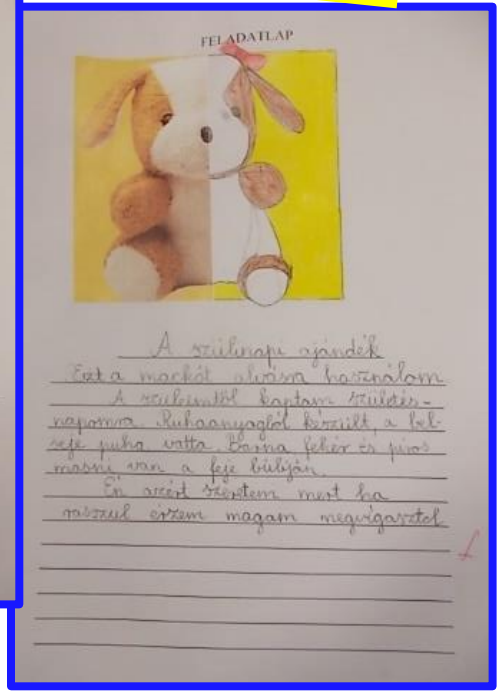 FELADATLAP
A szülinapi ajándék
Ezt a mackót alvásra használom
A szüleimtől kaptam születés-
napomra. Ruhaanyagból készült, a bel-
seje puha vatta. Barna fehér és piros
masni van a feje búbján.
Én azért szeretem mert ha
rosszul érzem magam megvigasztal